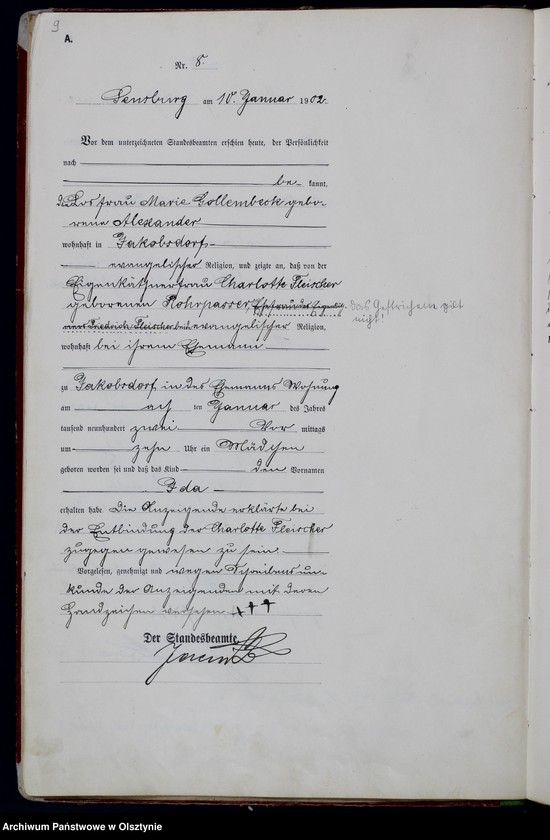 9
A.
Nr. 8.
Sensburg am 10. Januar 1902.
Vor dem unterzeichneten Standesbeamten erschien heute, der Persönlichkeit
nach
be kannt,
die Losfrau Marie Gollembeck gebo-
rene Alexander
wohnhaft in Jakobsdorf
evangelischer Religion, und zeigte an, daß von der
Eigenkäthnerfrau Charlotte Fleischer
geborenen Rohrpasser, Ehefrau des das Gestrichene gilt
Friedrich Fleischer beide evangelischer Religion, nicht!
wohnhaft bei ihrem Ehemann
zu Jakobsdorf in des Ehemanns Wohnung
am acht ten Januar des Jahres
tausend neunhundert zwei Vor mittags
um zehn Uhr ein Mädchen
geboren worden sei und daß das Kind den Vornamen
Ida
erhalten habe. Die Anzeigende erklärte bei
der Entbindung der Charlotte Fleischer
zugegen gewesen zu sein.
Vorgelesen, genehmigt und wegen Schreibensun-
kunde der Anzeigenden mit deren
Handzeichen versehen +++
Der Standesbeamte.
Archiwum Państwowe w Olsztynie